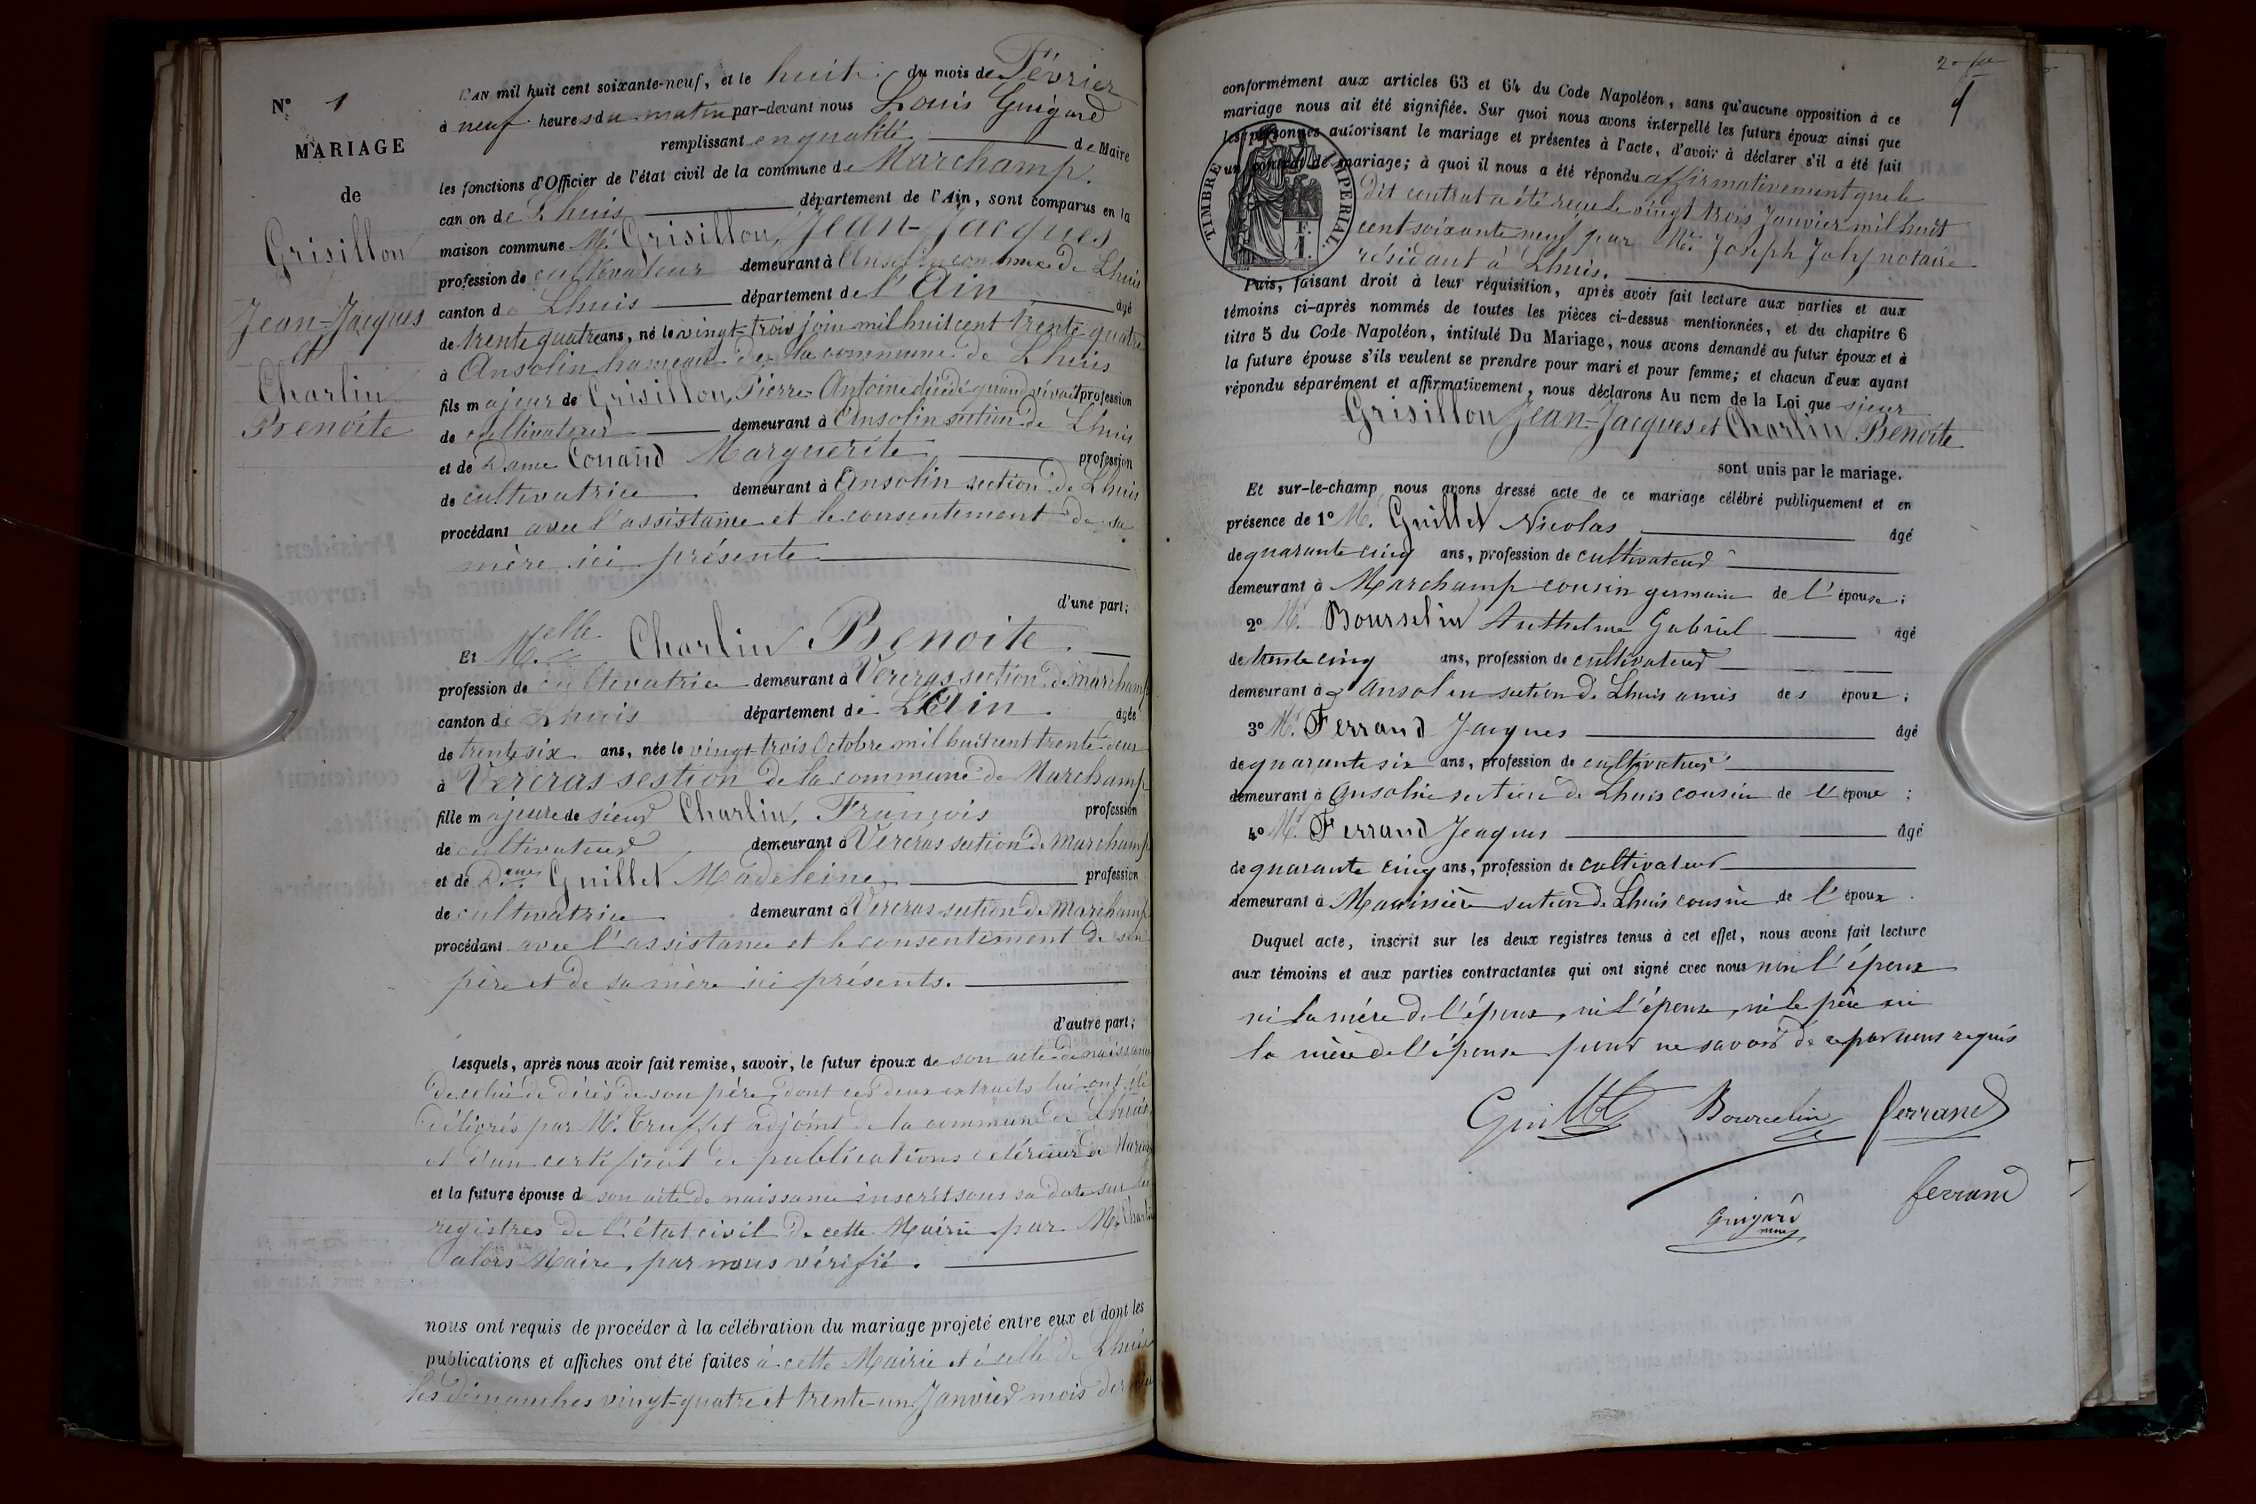 N° 1
MARIAGE
de
Grisillon
Jean-Jacques
et
Charlin
Benoite
L'AN mil huit cent soixante-neuf, et le huit du mois de Février
à neuf heures du matin par-devant nous Louis Guigard
remplissant en qualité de Maire
les fonctions d'Officier de l'état civil de la commune de Marchamp.
canton de Lhuis département de l'Ain, sont comparus en la
maison commune Mr. Grisillon, Jean-Jacques
profession de cultivateur demeurant à Ansolin commune de Lhuis
canton de Lhuis département de l'Ain âgé
de trente quatre ans, né le vingt-trois juin mil huit cent trente-quatre
à Ansolin hameau de la commune de Lhuis
fils majeur de Grisillon, Pierre-Antoine décédé quand vivait profession
de cultivateur demeurant à Ansolin section de Lhuis
et de Dame Conand Marguerite profession
de cultivatrice demeurant à Ansolin section de Lhuis
procédant avec l'assistance et le consentement de sa
mère ici présente
d'une part;
Et Melle Charlin Benoite.
profession de cultivatrice demeurant à Vercras section de Marchamp
canton de Lhuis département de L'Ain. âgée
de trente six ans, née le vingt-trois Octobre mil huit cent trente-deux
à Vercras sestion de la commune de Marchamp
fille majeure de sieur Charlin, François profession
de cultivateur demeurant à Vercras section de Marchamp
et de Dame Guillet Madeleine profession
de cultivatrice demeurant à Vercras section de Marchamp
procédant avec l'assistance et le consentement de son
père et de sa mère ici présents.
d'autre part;
Lesquels, après nous avoir fait remise, savoir, le futur époux de son acte de naissance
de celui de décès de son père, dont ces deux extraits lui ont été
délivrés par Mr. Truffet adjoint de la commune de Lhuis
et d'un certificat de publications
et la future épouse de son acte de naissance inscrit sous sa date sur les
registres de l'état civil de cette Mairie par Mr. Charlin
alors Maire, par nous vérifié.
nous ont requis de procéder à la célébration du mariage projeté entre eux et dont les
publications et affiches ont été faites à cette Mairie et à celle de Lhuis
les dimanches vingt-quatre et trente-un Janvier mois dernier
conformément aux articles 63 et 64 du Code Napoléon, sans qu'aucune opposition à ce
mariage nous ait été signifiée. Sur quoi nous avons interpellé les futurs époux ainsi que
les personnes autorisant le mariage et présentes à l'acte, d'avoir à déclarer s'il a été fait
un contrat de mariage; à quoi il nous a été répondu affirmativement que le
dit contrat a été reçu le vingt trois Janvier mil huit
cent soixante neuf par Me. Joseph Joly notaire
résidant à Lhuis.
TIMBRE IMPERIAL.
F.
1.
Puis, faisant droit à leur réquisition, après avoir fait lecture aux parties et aux
témoins ci-après nommés de toutes les pièces ci-dessus mentionnées, et du chapitre 6
titre 5 du Code Napoléon, intitulé Du Mariage, nous avons demandé au futur époux et à
la future épouse s'ils veulent se prendre pour mari et pour femme; et chacun d'eux ayant
répondu séparément et affirmativement, nous déclarons Au nom de la Loi que sieur
Grisillon Jean-Jacques et Charlin Benoite
sont unis par le mariage.
Et sur-le-champ nous avons dressé acte de ce mariage célébré publiquement et en
présence de 1° M. Guillet Nicolas âgé
de quarante cinq ans, profession de cultivateur
demeurant à Marchamp cousin germain de l'épouse;
2° Mr. Bourselin Anthelme Gabriel âgé
de trente cinq ans, profession de cultivateur
demeurant à Ansolin section de Lhuis amis des époux;
3° Mr. Ferrand Jacques âgé
de quarante six ans, profession de cultivateur
demeurant à Ansolin section de Lhuis cousin de l'époux;
4° Mr. Ferrand Jacques âgé
de quarante cinq ans, profession de cultivateur
demeurant à section de Lhuis cousin de l'époux.
Duquel acte, inscrit sur les deux registres tenus à cet effet, nous avons fait lecture
aux témoins et aux parties contractantes qui ont signé avec nous non l'époux
ni la mère de l'époux, ni l'épouse, ni le père ni
la mère de l'épouse pour ne savoir de ce par nous requis
Guillet Bourcelin ferrand
Guigard ferrand
maire